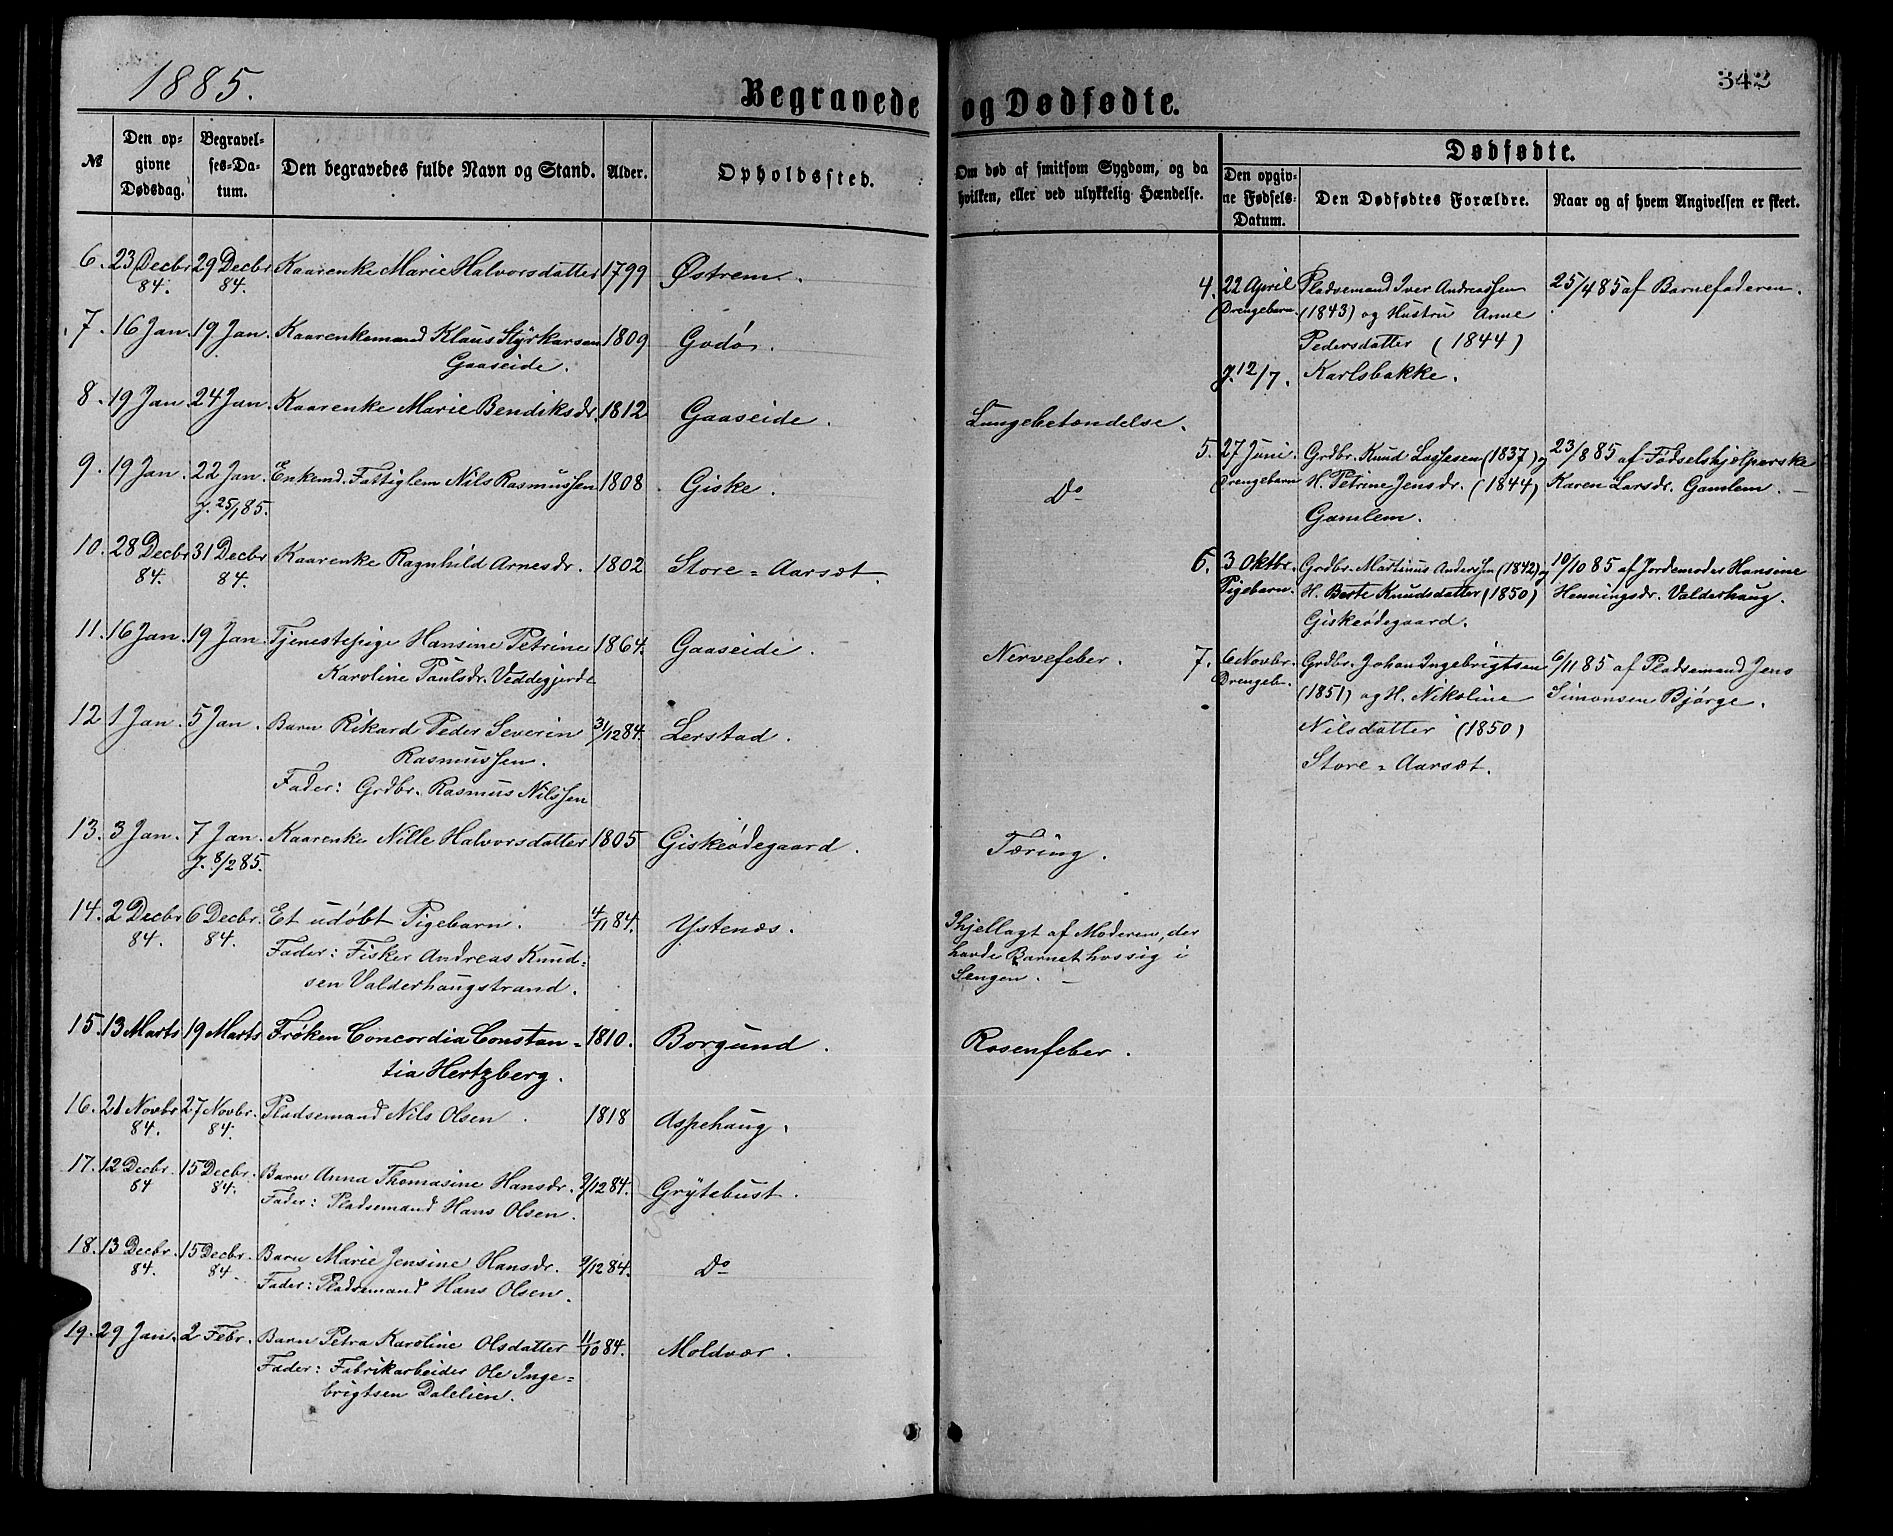 1885.
Begravede og Dødfødte.
342
№
Den opgivne Dødsdag.
Begravelses-Datum.
Den begravedes fulde Navn og Stand.
Alder.
Opholdssted.
Om død af smitsom Sygdom, og da hvilken, eller ved ulykkelig Hændelse.
Dødfødte.
Den opgivne Fødsels-Datum.
Den Dødfødtes Forældre.
Naar og af hvem Angivelsen er skeet.
6. 23 Decbr 84. 29 Decbr 84. Kaarenke Marie Halvorsdatter 1799 Østrem.
7. 16 Jan. 19 Jan. Kaarenkemand Klaus Styrkarsen 1809 Godø.
Gaaseide.
8. 19 Jan. 24 Jan. Kaarenke Marie Bendiksdr. 1812 Gaaseide. Lungebetændelse.
9. 19 Jan. 22 Jan. Enkemd. Fattiglem Nils Rasmussen 1808 Giske. Do
J. 25/1 85.
10. 28 Decbr 84. 31 Decbr 84. Kaarenke Ragnhild Arnesdr. 1802 Store=Aarsæt.
11. 16 Jan. 19 Jan. Tjenestepige Hansine Petrine 1864. Gaaseide. Nervefeber.
Karoline Paulsdr. Veddegjerde
12 1 Jan. 5 Jan. Barn Rikard Peder Severin 31/12 84. Lerstad.
Rasmussen.
Fader: Grdbr. Rasmus Nilssen
13. 3 Jan. 7 Jan. Kaarenke Nille Halvorsdatter 1805 Giskeødegaard. Tæring.
J. 8/2 85.
14. 2 Decbr 84. 6 Decbr. 84. Et udøbt Pigebarn. 4/11 84. Ystenæs. Ihjellagt af Moderen, der
Fader: Fisker Andreas Knud= havde Barnet hos sig i
sen Valderhaugstrand. Sengen.
15. 13 Marts 19 Marts Frøken Concordia Constan= 1810. Borgund. Rosenfeber.
tia Hertzberg.
16. 21 Novbr 84. 27 Novbr. 84. Pladsemand Nils Olsen. 1818 Aspehaug.
17. 12 Decbr. 84 15 Decbr. 84. Barn Anna Thomasine Hansdr. 9/12 84. Grytebust.
Fader: Pladsemand Hans Olsen.
18. 13 Decbr. 84. 15 Decbr. 84. Barn Marie Jensine Hansdr. 9/12 84. Do
Fader: Pladsemand Hans Olsen.
19. 29 Jan. 2 Febr. Barn Petra Karoline Olsdatter 11/10 84. Moldvær.
Fader: Fabrikarbeider Ole Inge=
brigtsen Dalelien.
4. 22 April Pladsemand Iver Andreassen 25/4 85 af Barnefaderen.
Drengebarn. (1843) og Hustru Anne
Pedersdatter (1844)
J. 12/7. Karlsbakke.
5. 27 Juni. Grdbr. Knud Lassesen (1837) og 23/8 85 af Fødselshjælperske
Drengebarn H. Petrine Jensdr. (1844) Karen Larsdr. Gamlem.
Gamlem.
6. 3 Oktbr. Grdbr. Martinus Anderssen (1842) og 10/10 85 af Jordemoder Hansine
Pigebarn. H. Berte Knudsdatter (1850) Henningsdr. Valderhaug.
Giskeødegaard.
7. 6 Novbr. Grdbr. Johan Ingebrigtsen 6/11 85 af Pladsemand Jens
Drengeb. (1851) og H. Nikoline Simonsen Bjørge.
Nilsdatter (1850)
Store=Aarsæt.